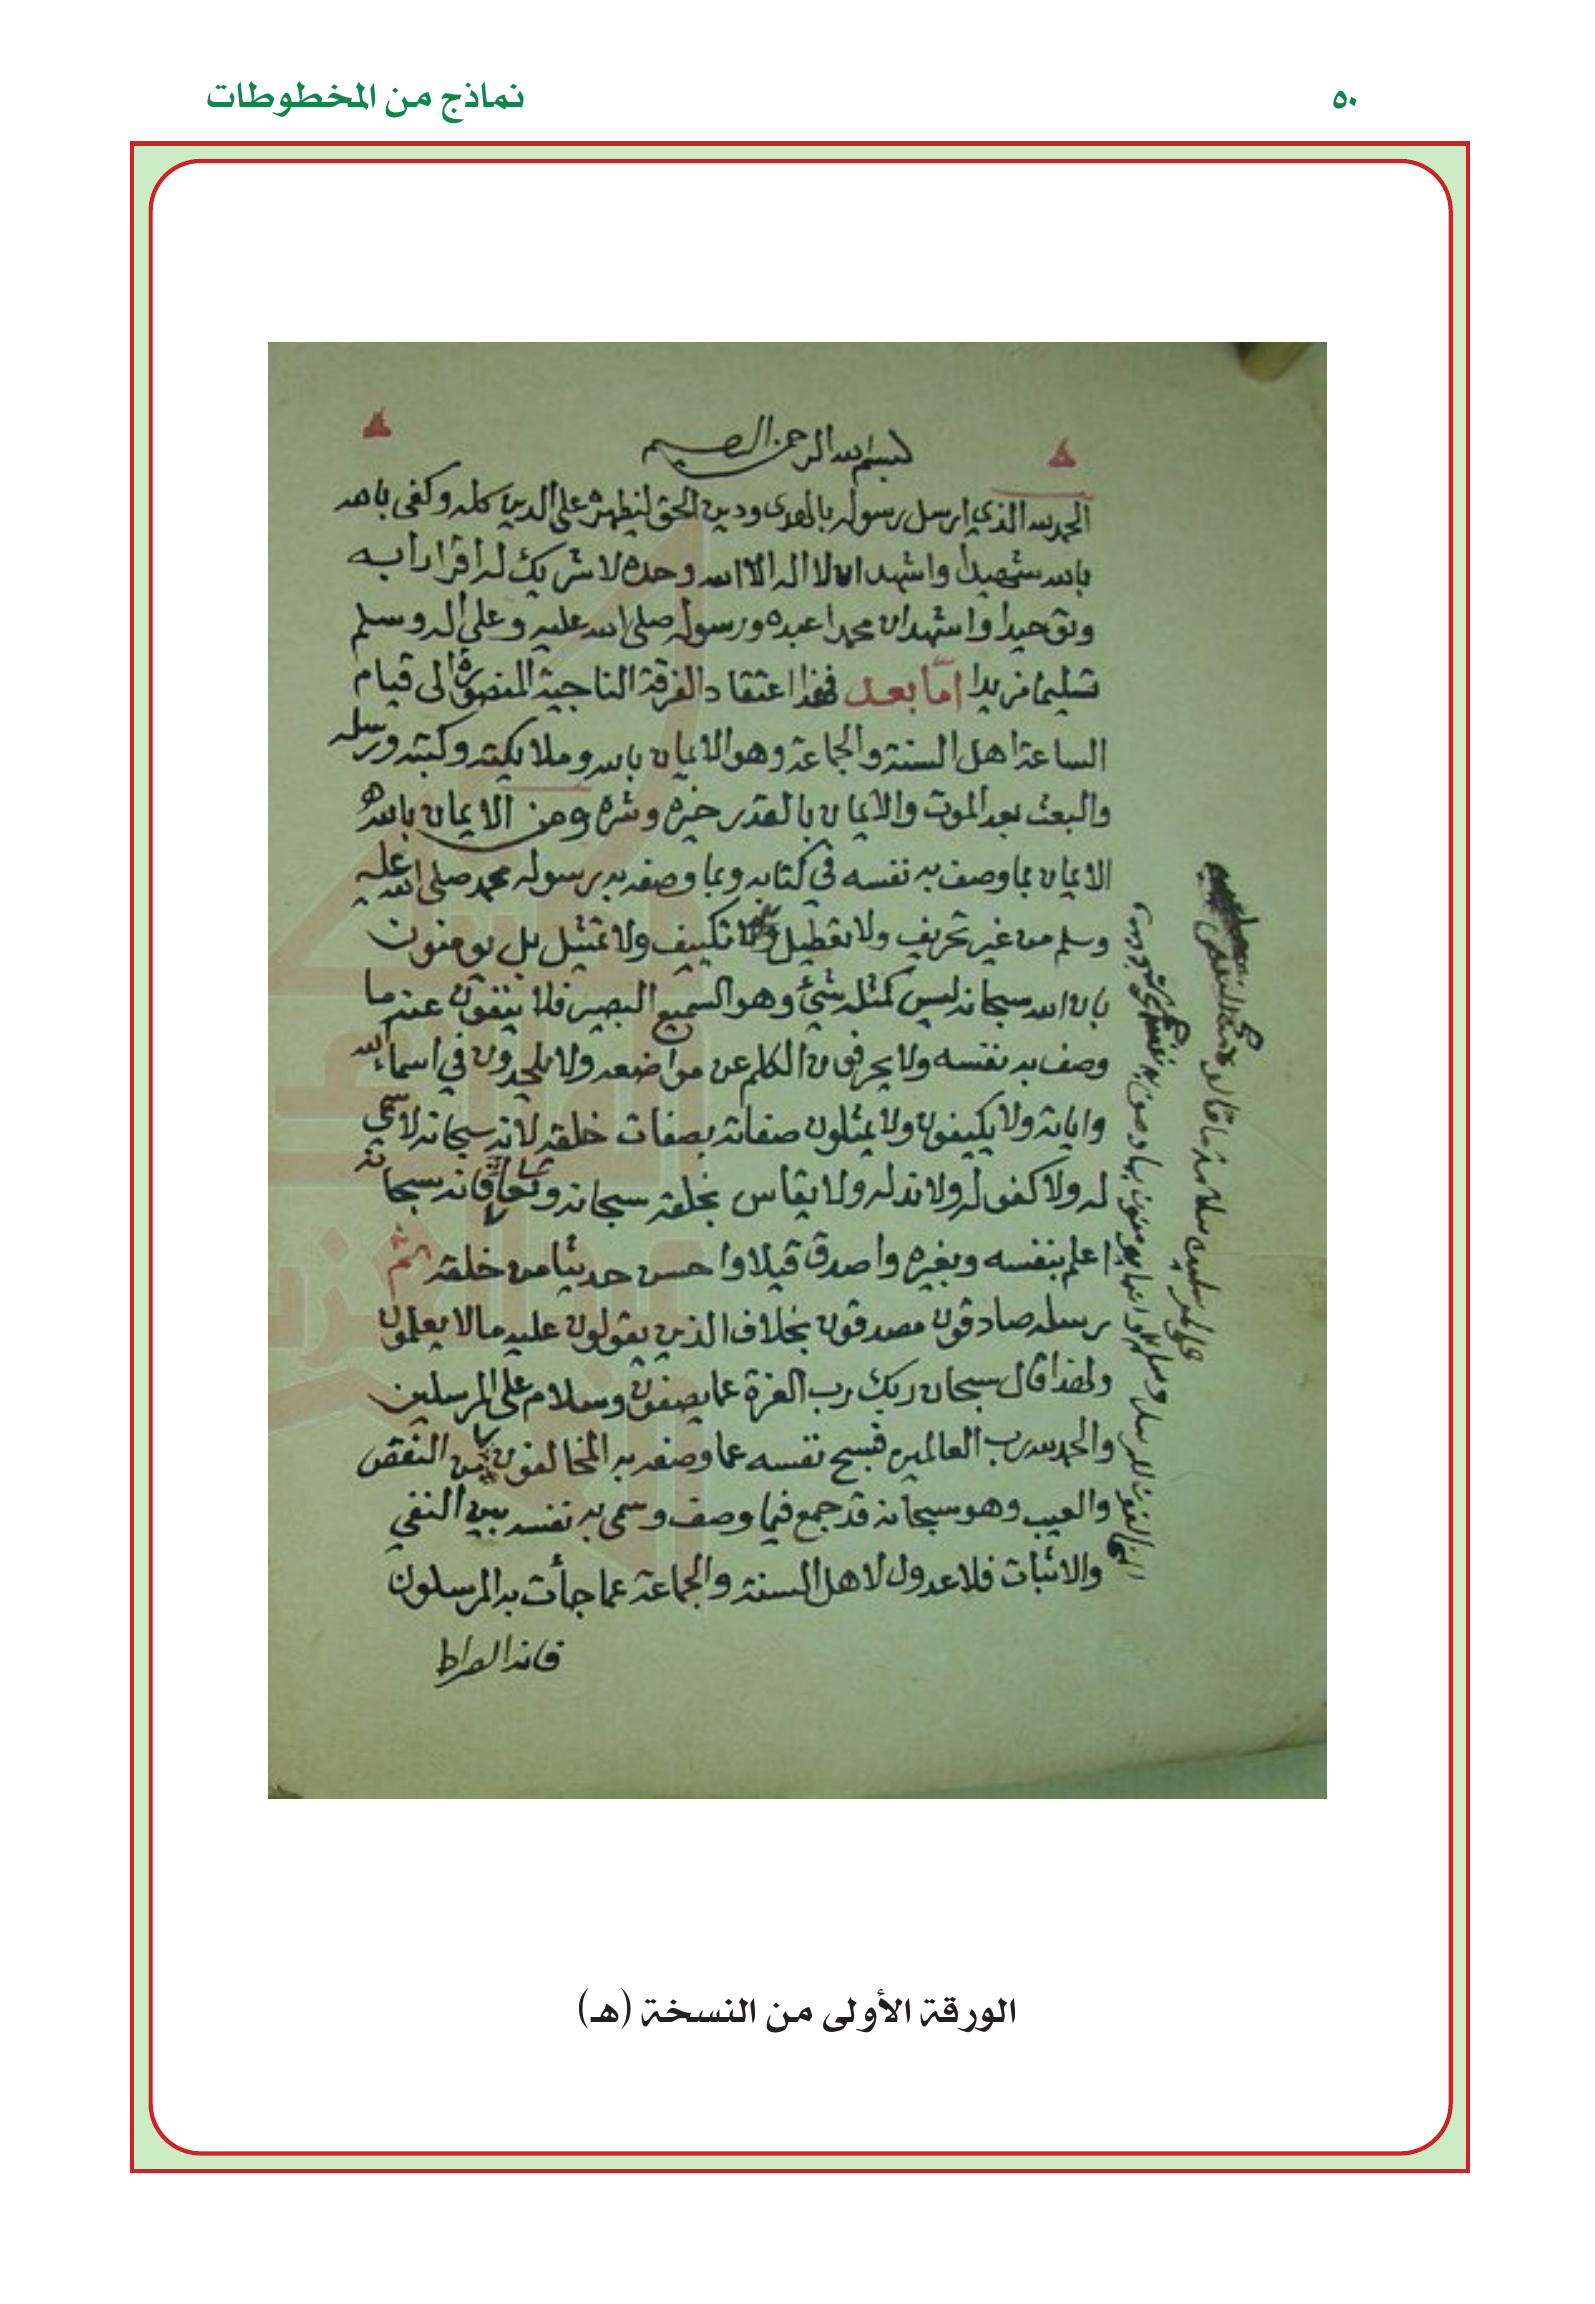 نماذج من المخطوطات
٥٠
بسم الله الرحمن الرحيم
الحمد لله الذي ارسل رسوله بالهدى ودين الحق ليظهره على الدين كله وكفى بالله
بالله شهيدا واشهد ان لا اله الا الله وحده لا شريك له اقرارا به
وتوحيدا واشهد ان محمدا عبده ورسوله صلى الله عليه وعلى اله وسلم
تسليما مزيدا امّا بعد فهذا اعتقاد الفرقة الناجية المنصورة الى قيام
الساعة اهل السنة والجماعة وهو الايمان بالله وملائكته وكتبه ورسله
والبعث بعد الموت والايمان بالقدر خيره وشره ومن الايمان بالله
الايمان بما وصف به نفسه في كتابه وبما وصفه به رسوله محمد صلى الله عليه
وسلم من غير تحريف ولا تعطيل ولا تكييف ولا تمثيل بل يومنون
بان الله سبحانه ليس كمثله شئ وهو السميع البصير فلا ينفون عنه ما
وصف به نفسه ولا يحرفون الكلم عن مواضعه ولا يلحدون في اسماء الله
واياته ولا يكيفون ولا يمثلون صفاته بصفات خلقه لانه سبحانه لا سمي
له ولا كفو له ولا ند له ولا يقاس بخلقه سبحانه وتعالى فانه سبحانه
اعلم بنفسه وبغيره واصدق قيلا واحسن حديثا من خلقه ثم
رسله صادقون مصدقون بخلاف الذين يقولون عليه مالا يعلمون
ولهذا قال سبحان ربك رب العزة عما يصفون وسلام على المرسلين
والحمد لله رب العالمين فسبح نفسه عما وصفه به المخالفون من النقص
والعيب وهو سبحانه قد جمع فيما وصف وسمى به نفسه بين النفي
والاثبات فلا عدول لاهل السنة والجماعة عما جأت به المرسلون
فانه الصراط
المخالفون للرسل وسلم
على المرسلين سلامة ما قالوه من النقص
الورقة الأولى من النسخة (هـ)